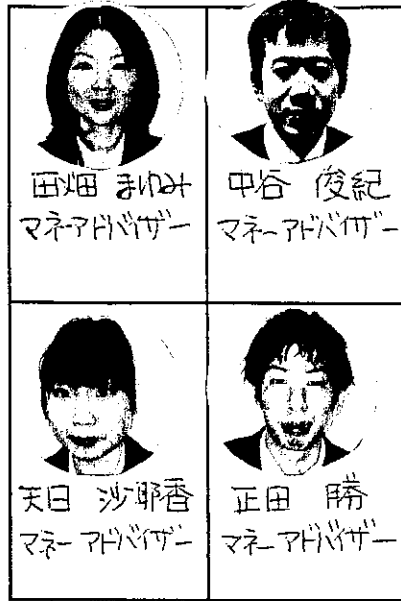 田畑 まゆみ
マネーアドバイザー
中谷 俊紀
マネーアドバイザー
天日 沙耶香
マネーアドバイザー
正田 勝
マネーアドバイザー